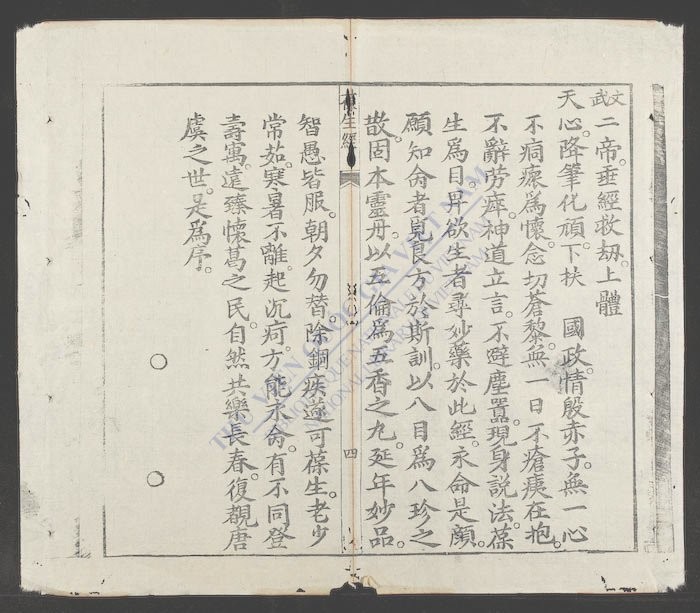 文武二帝。垂經救劫。上體
天心。降筆化頑。下扶　國政。情殷赤子。無一心
不痌瘝爲懷。念切蒼黎。無一日不瘡痍在抱。
不辭劳瘁。神道立言。不避塵囂。現身説法。葆
生爲目。畀欲生者尋妙藥於此經。永命是顏。
願知命者覓良方於斯訓。以八目爲八珍之
散。固本靈丹。以五倫爲五香之丸。延年妙品。
葆生經
四
智愚皆服。朝夕勿替。除錮疾。遂可葆生。老少
常茹。寒暑不離。起沉疴。方能永命。有不同登
壽寓。遠臻懷葛之民。自然共樂長春。復覩唐
虞之世。是爲序。
THƯ VIỆN QUỐC GIA VIỆT NAM
BIBLIOTHEQUE NATIONALE DU VIETNAM
NATIONAL LIBRARY OF VIETNAM